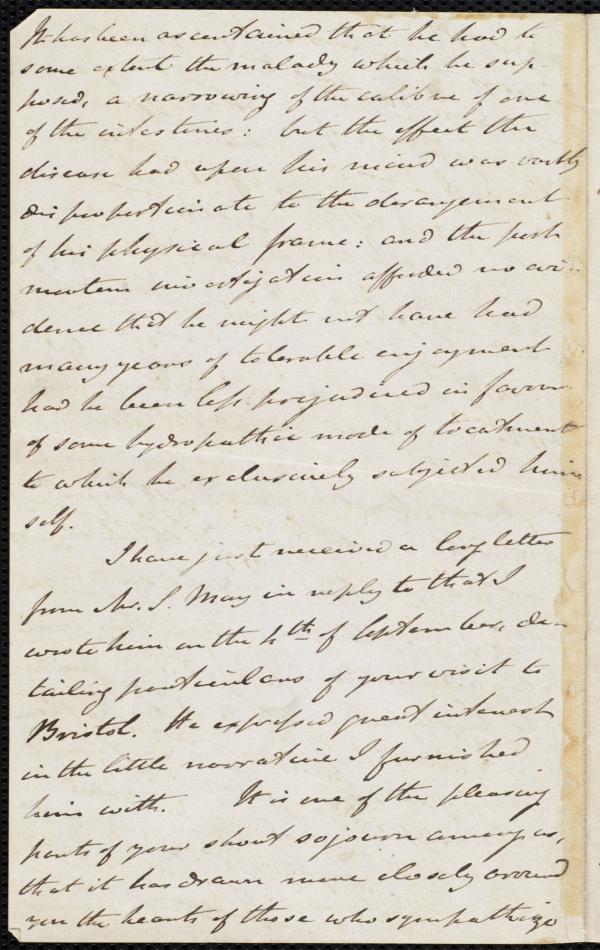 It has been ascertained that he had to
some extent the malady which he sup-
posed, a narrowing of the calibre of one
of the intestines: but the effect the
disease had upon his mind was vastly
disproportionate to the derangement
of his physical frame: and the post
mortem investigation afforded no evi-
dence that he might not have had
many years of tolerable enjoyment
had he been less prejudiced in favour
of some hydropathic mode of treatment
to which he exclusively subjected him-
self.
I have just received a long letter
from Mr. S. May in reply to that I
wrote him on the 4th of September, de-
tailing particulars of your visit to
Bristol. He expressed great interest
in the little narrative I furnished
him with. It is one of the pleasing
parts of your short sojourn among us,
that it has drawn more closely around
you the hearts of those who sympathize